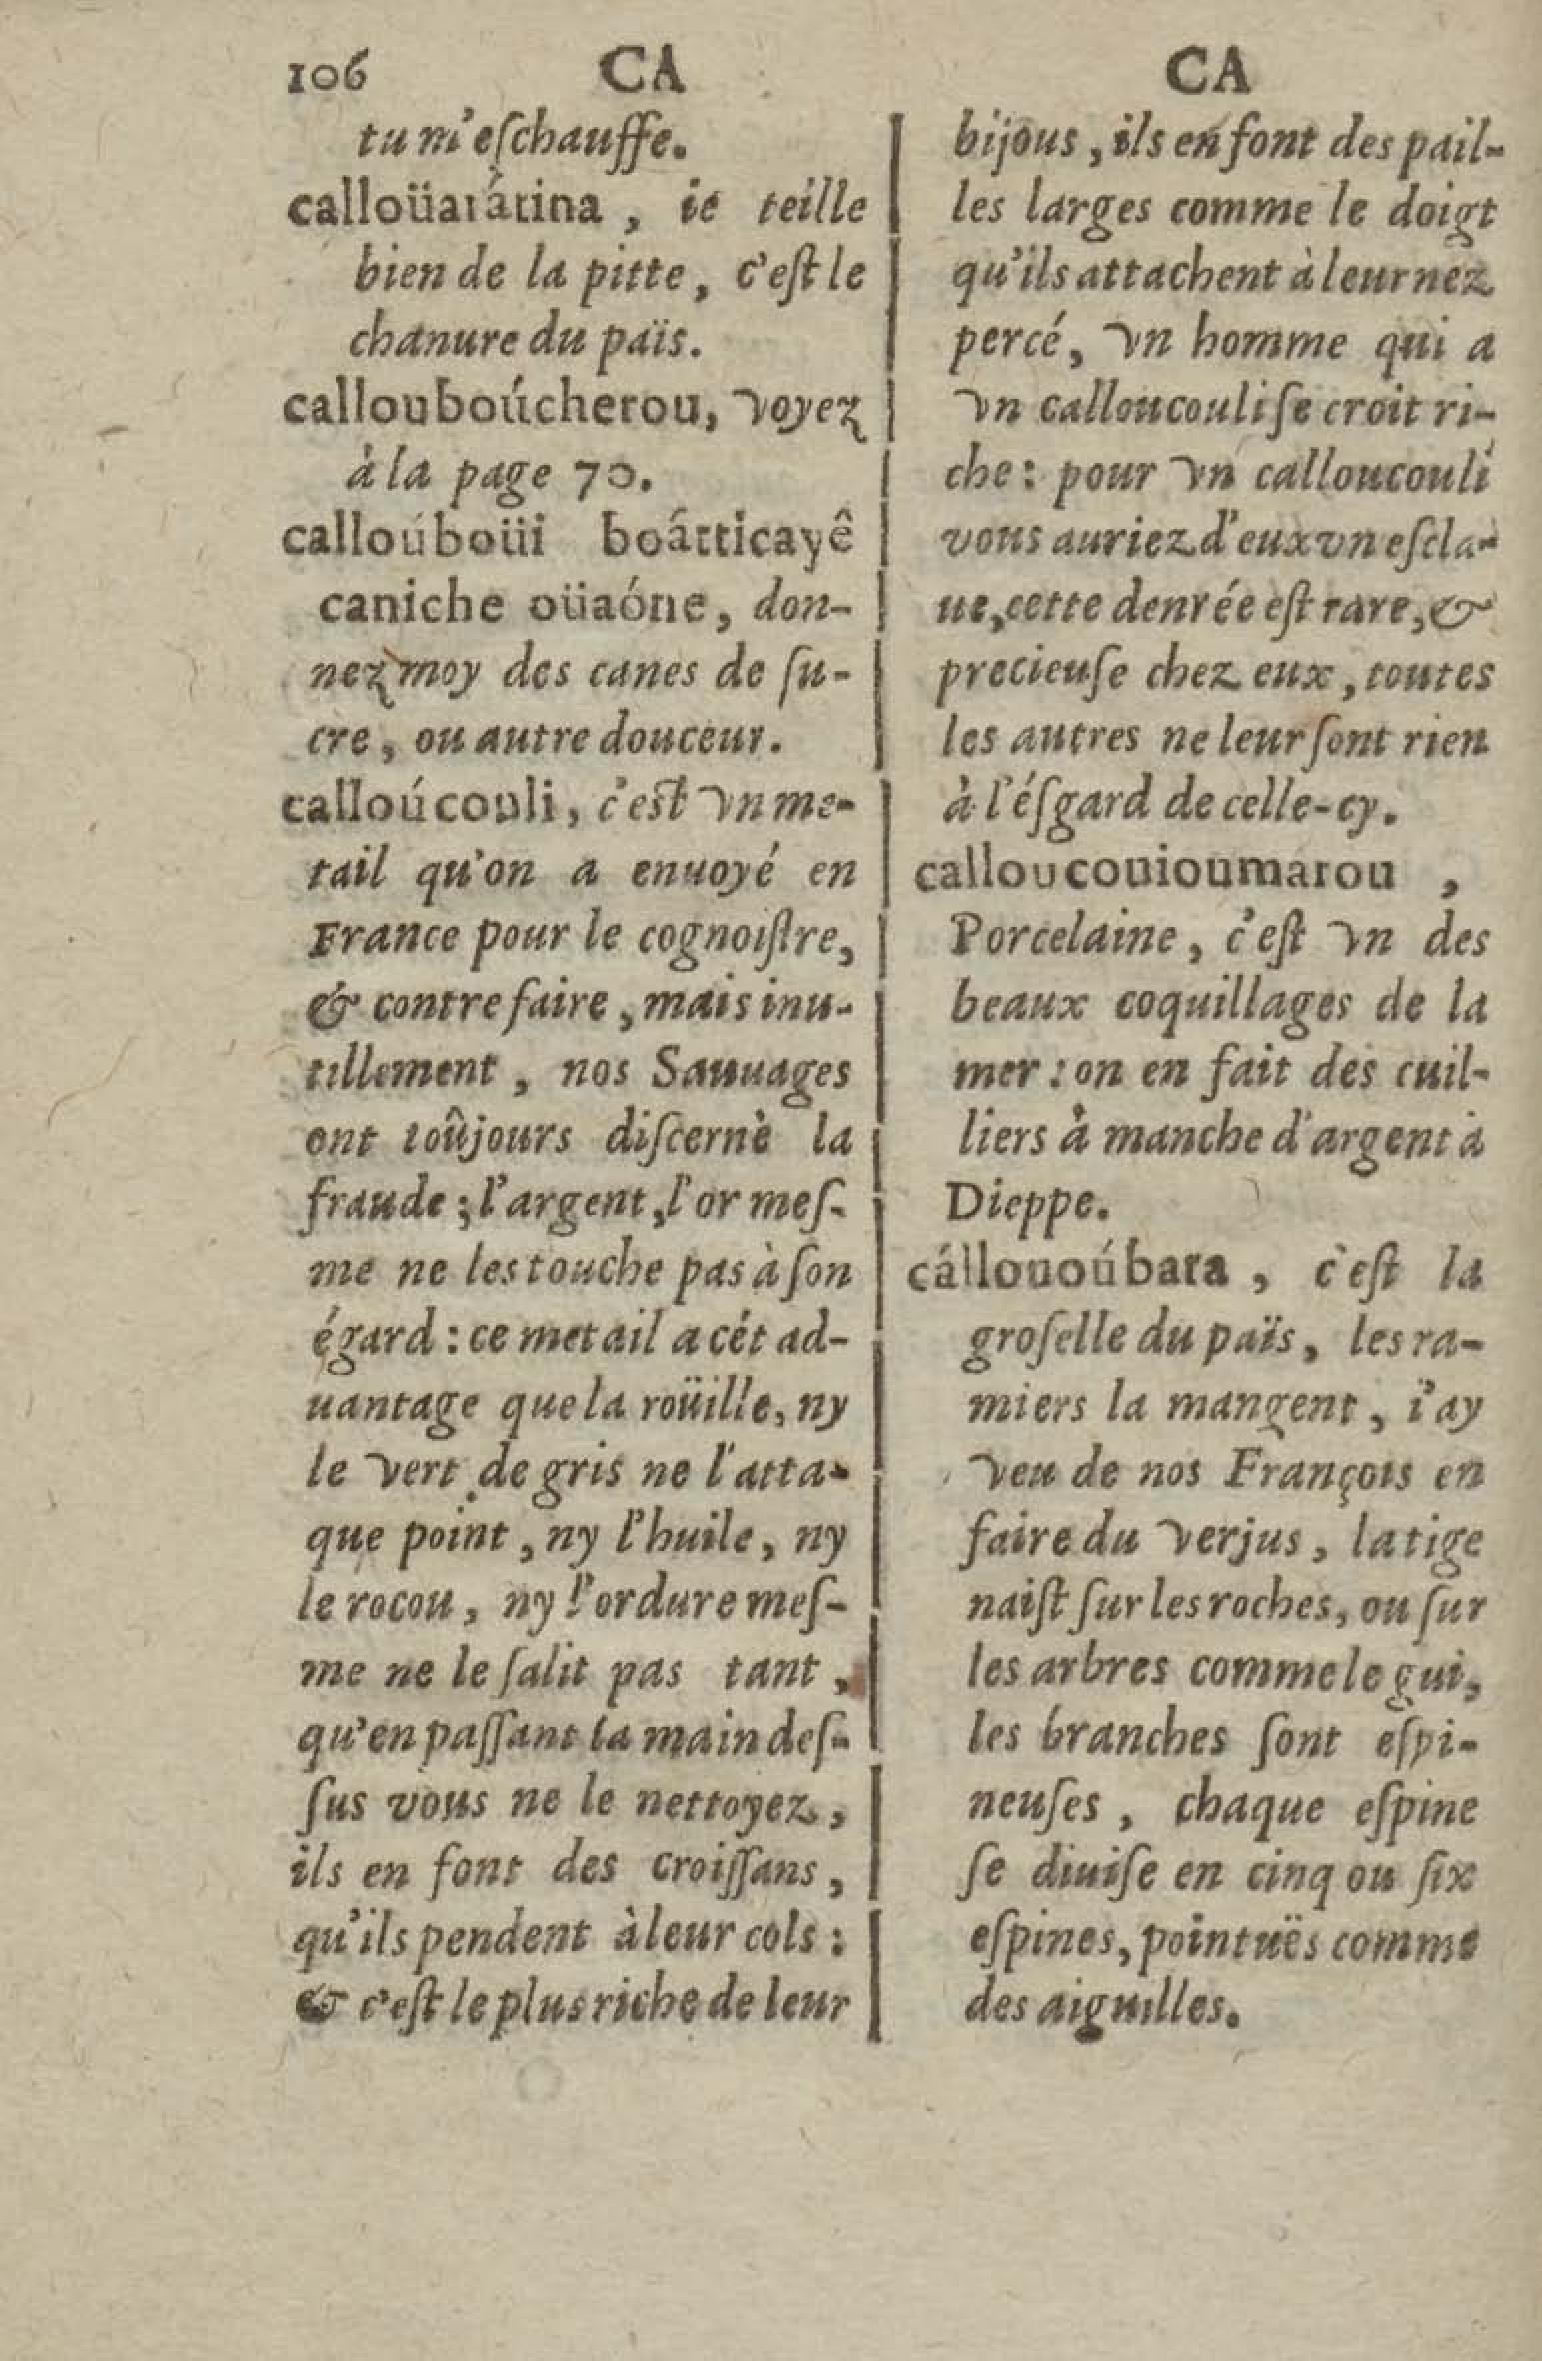 106 CA CA
tu m'eſchauffe.
calloüarátina, ie teille
bien de la pitte, c'eſt le
chanure du païs.
callouboúcherou, voyez
à la page 70.
calloúboüi boátticayê
caniche oüaóne, don-
nez moy des canes de ſu-
cre, ou autre douceur.
calloúcouli, c'eſt vn me-
tail qu'on a enuoyé en
France pour le cognoiſtre,
& contrefaire, mais inu-
tillement, nos Sauuages
ont toûjours diſcernè la
fraude; l'argent, l'or meſ-
me ne les touche pas à ſon
égard: ce metail a cét ad-
uantage que la roüille, ny
le vert de gris ne l'atta-
que point, ny l'huile, ny
le rocou, ny l'ordure meſ-
me ne le ſalit pas tant,
qu'en paſſant la main deſ-
ſus vous ne le nettoyez,
ils en font des croiſſans,
qu'ils pendent à leur cols:
& c'eſt le plus riche de leur
bijous, ils en font des pail-
les larges comme le doigt
qu'ils attachent à leur nez
percé, vn homme qui a
vn calloucouli ſe croit ri-
che: pour vn calloucouli
vous auriez d'eux vn eſcla-
ue, cette denrée eſt rare, &
precieuſe chez eux, toutes
les autres ne leur ſont rien
à l'éſgard de celle-cy.
calloucouioumàrou,
Porcelaine, c'eſt vn des
beaux coquillages de la
mer: on en fait des cuil-
liers à manche d'argent à
Dieppe.
cállouoúbara, c'eſt la
groſelle du païs, les ra-
miers la mangent, i'ay
veu de nos François en
faire du verjus, la tige
naiſt ſur les roches, ou ſur
les arbres comme le gui,
les branches ſont eſpi-
neuſes, chaque eſpine
ſe diuiſe en cinq ou ſix
eſpines, pointuës comme
des aiguilles.